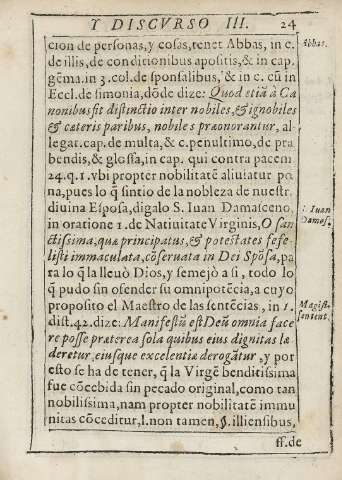 Y DISCVRSO III. 24
cion de personas, y cosas, tenet Abbas, in c.
Abbas.
de illis, de conditionibus apositis, & in cap.
gēma. in 3. col. de sponsalibus, & in c. cū in
Eccl. de simonia, dōde dize: Quod etiā à Ca
nonibus fit distinctio inter nobiles, & ignobiles
& cæteris paribus, nobiles præonorantur, al-
legat. cap. de multa, & c. penultimo, de præ
bendis, & glossa, in cap. qui contra pacem
24. q. 1. vbi propter nobilitatē aliuiatur pœ
na, pues lo q̃ sintio de la nobleza de nuestr.
diuina Esposa, digalo S. Iuan Damasceno,
S. Iuan
Damas.
in oratione 1. de Natiuitate Virginis, O san
ctissima, quæ principatus, & potestates fefe-
listi immaculata, cōseruata in Dei Spōsa, pa
ra lo q̃ la lleuò Dios, y semejò a si, todo lo
q̃ pudo sin ofender su omnipotēcia, a cuyo
proposito el Maestro de las sentēcias, in 1.
Magist.
sentent.
dist. 42. dize: Manifestū est Deū omnia face
re posse præterea sola quibus eius dignitas læ
deretur, eiusque excelentiæ derogātur, y por
esto se ha de tener, q̃ la Virgē benditissima
fue cōcebida sin pecado original, como tan
nobilissima, nam propter nobilitatē immu
nitas cōceditur, l. non tamen, §. illiensibus,
ff. de